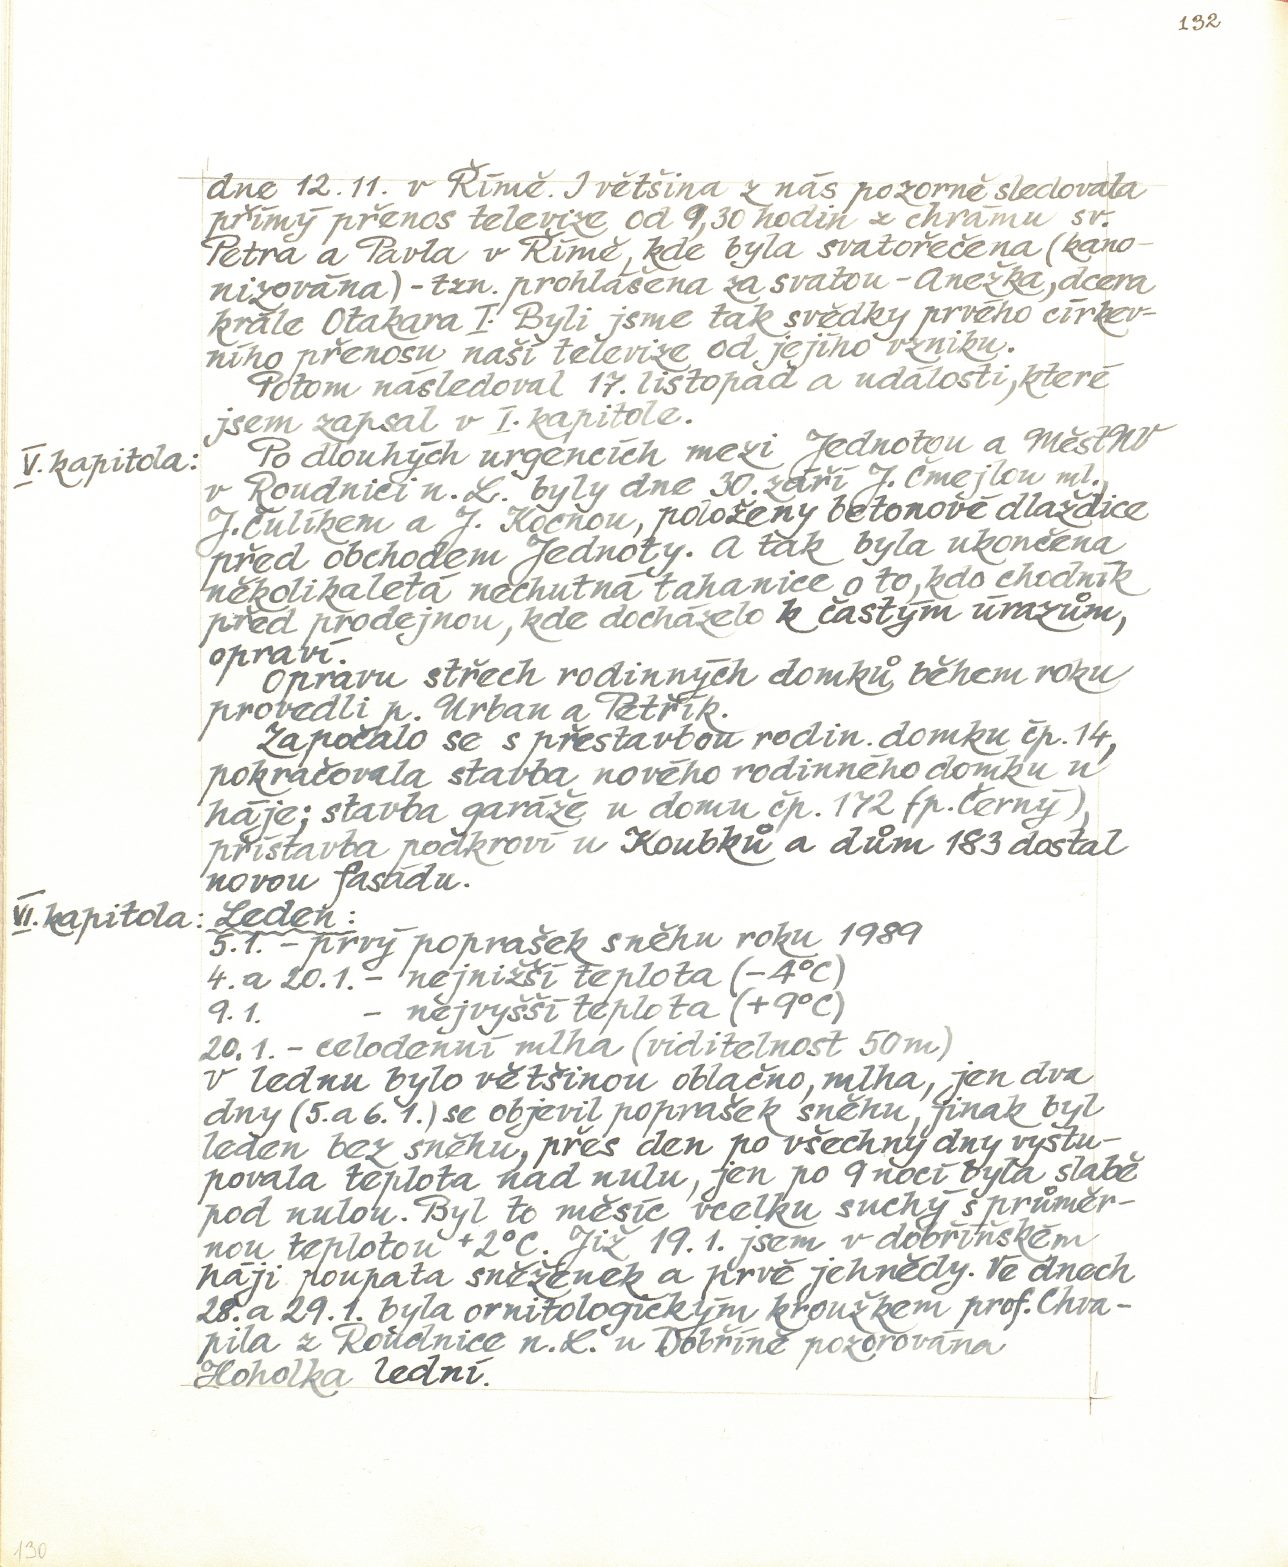 132
dne 12.11. v Římě. I většina z nás pozorně sledovala
přímý přenos televize od 9,30 hodin z chrámu sv.
Petra a Pavla v Římě, kde byla svatořečena (kano-
nizována) - tzn. prohlášena za svatou - Anežka, dcera
krále Otakara I. Byli jsme tak svědky prvého církev-
ního přenosu naší televize od jejího vzniku.
Potom následoval 17. listopad a události, které
jsem zapsal v I. kapitole.
V. kapitola: Po dlouhých urgencích mezi Jednotou a MěstNV
v Roudnici n. L. byly dne 30. září J. Čmejlou ml.,
J. Čulíkem a J. Kocnou, položeny betonové dlaždice
před obchodem Jednoty. A tak byla ukončena
několikaletá nechutná tahanice o to, kdo chodník
před prodejnou, kde docházelo k častým úrazům,
opraví.
Opravu střech rodinných domků během roku
provedli p. Urban a Petřík.
Započalo se s přestavbou rodin. domku čp. 14,
pokračovala stavba nového rodinného domku u
háje; stavba garáže u domu čp. 172 (p. Černý),
přístavba podkroví u Koubků a dům 183 dostal
novou fasádu.
VI. kapitola: Leden:
5.1. - prvý poprašek sněhu roku 1989
4. a 20.1. - nejnižší teplota (-4°C)
9.1. - nejvyšší teplota (+9°C)
20.1. - celodenní mlha (viditelnost 50m)
V lednu bylo většinou oblačno, mlha, jen dva
dny (5. a 6.1.) se objevil poprašek sněhu, jinak byl
leden bez sněhu, přes den po všechny dny vystu-
povala teplota nad nulu, jen po 9 nocí byla slabě
pod nulou. Byl to měsíc vcelku suchý s průměr-
nou teplotou +2°C. Již 19.1. jsem v dobříňském
háji poupata sněženek a prvé jehnědy. Ve dnech
28. a 29.1. byla ornitologickým kroužkem prof. Chva-
pila z Roudnice n. L. u Dobříně pozorována
Hoholka lední.
130